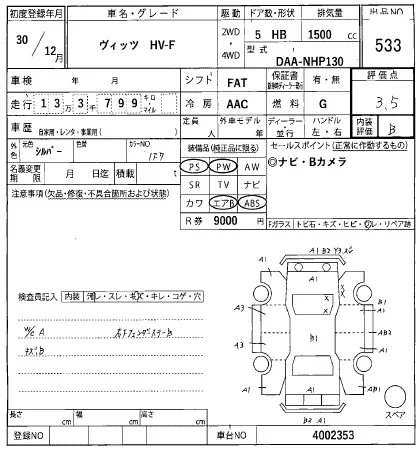 初度登録年月 車名・グレード 駆動 ドア数・形状 排気量 出品NO
30/12月 ヴィッツ HV-F 2WD・4WD 5 HB 1500 cc 533
型式 DAA-NHP130
車検 年 月 シフト FAT 保証書 有・無 評価点
走行 13万3千799 キロ・マイル 冷房 AAC 燃料 G 3.5
車歴 自家用・レンタ・事業用( ) 定員 人 外車モデル 年 ディーラー・並行 ハンドル 左・右 内装評価 B
外色 元色 シルバー 色替 カラーNO 1F7
装備品(純正品に限る) セールスポイント(正常に作動するもの)
名義変更期限 月 日迄 積載 t
PS PW AW ◎ナビ・Bカメラ
注意事項(欠品・修復・不具合箇所および状態)
SR TV ナビ
カワ エアB ABS
R券 9000
Fガラス トビ石・キズ・ヒビ・ワレ・リペア跡
A1 B2 Y3
A1 A1
検査員記入 内装 汚レ・スレ・キズ・キレ・コゲ・穴
X
X X
A3 B1
W/C A
キズ B
A3 B1 AB2
A1 A1 AB1
A1
B2 A1
スペア
長さ cm 幅 cm 高さ cm
登録NO 車台NO 4002353